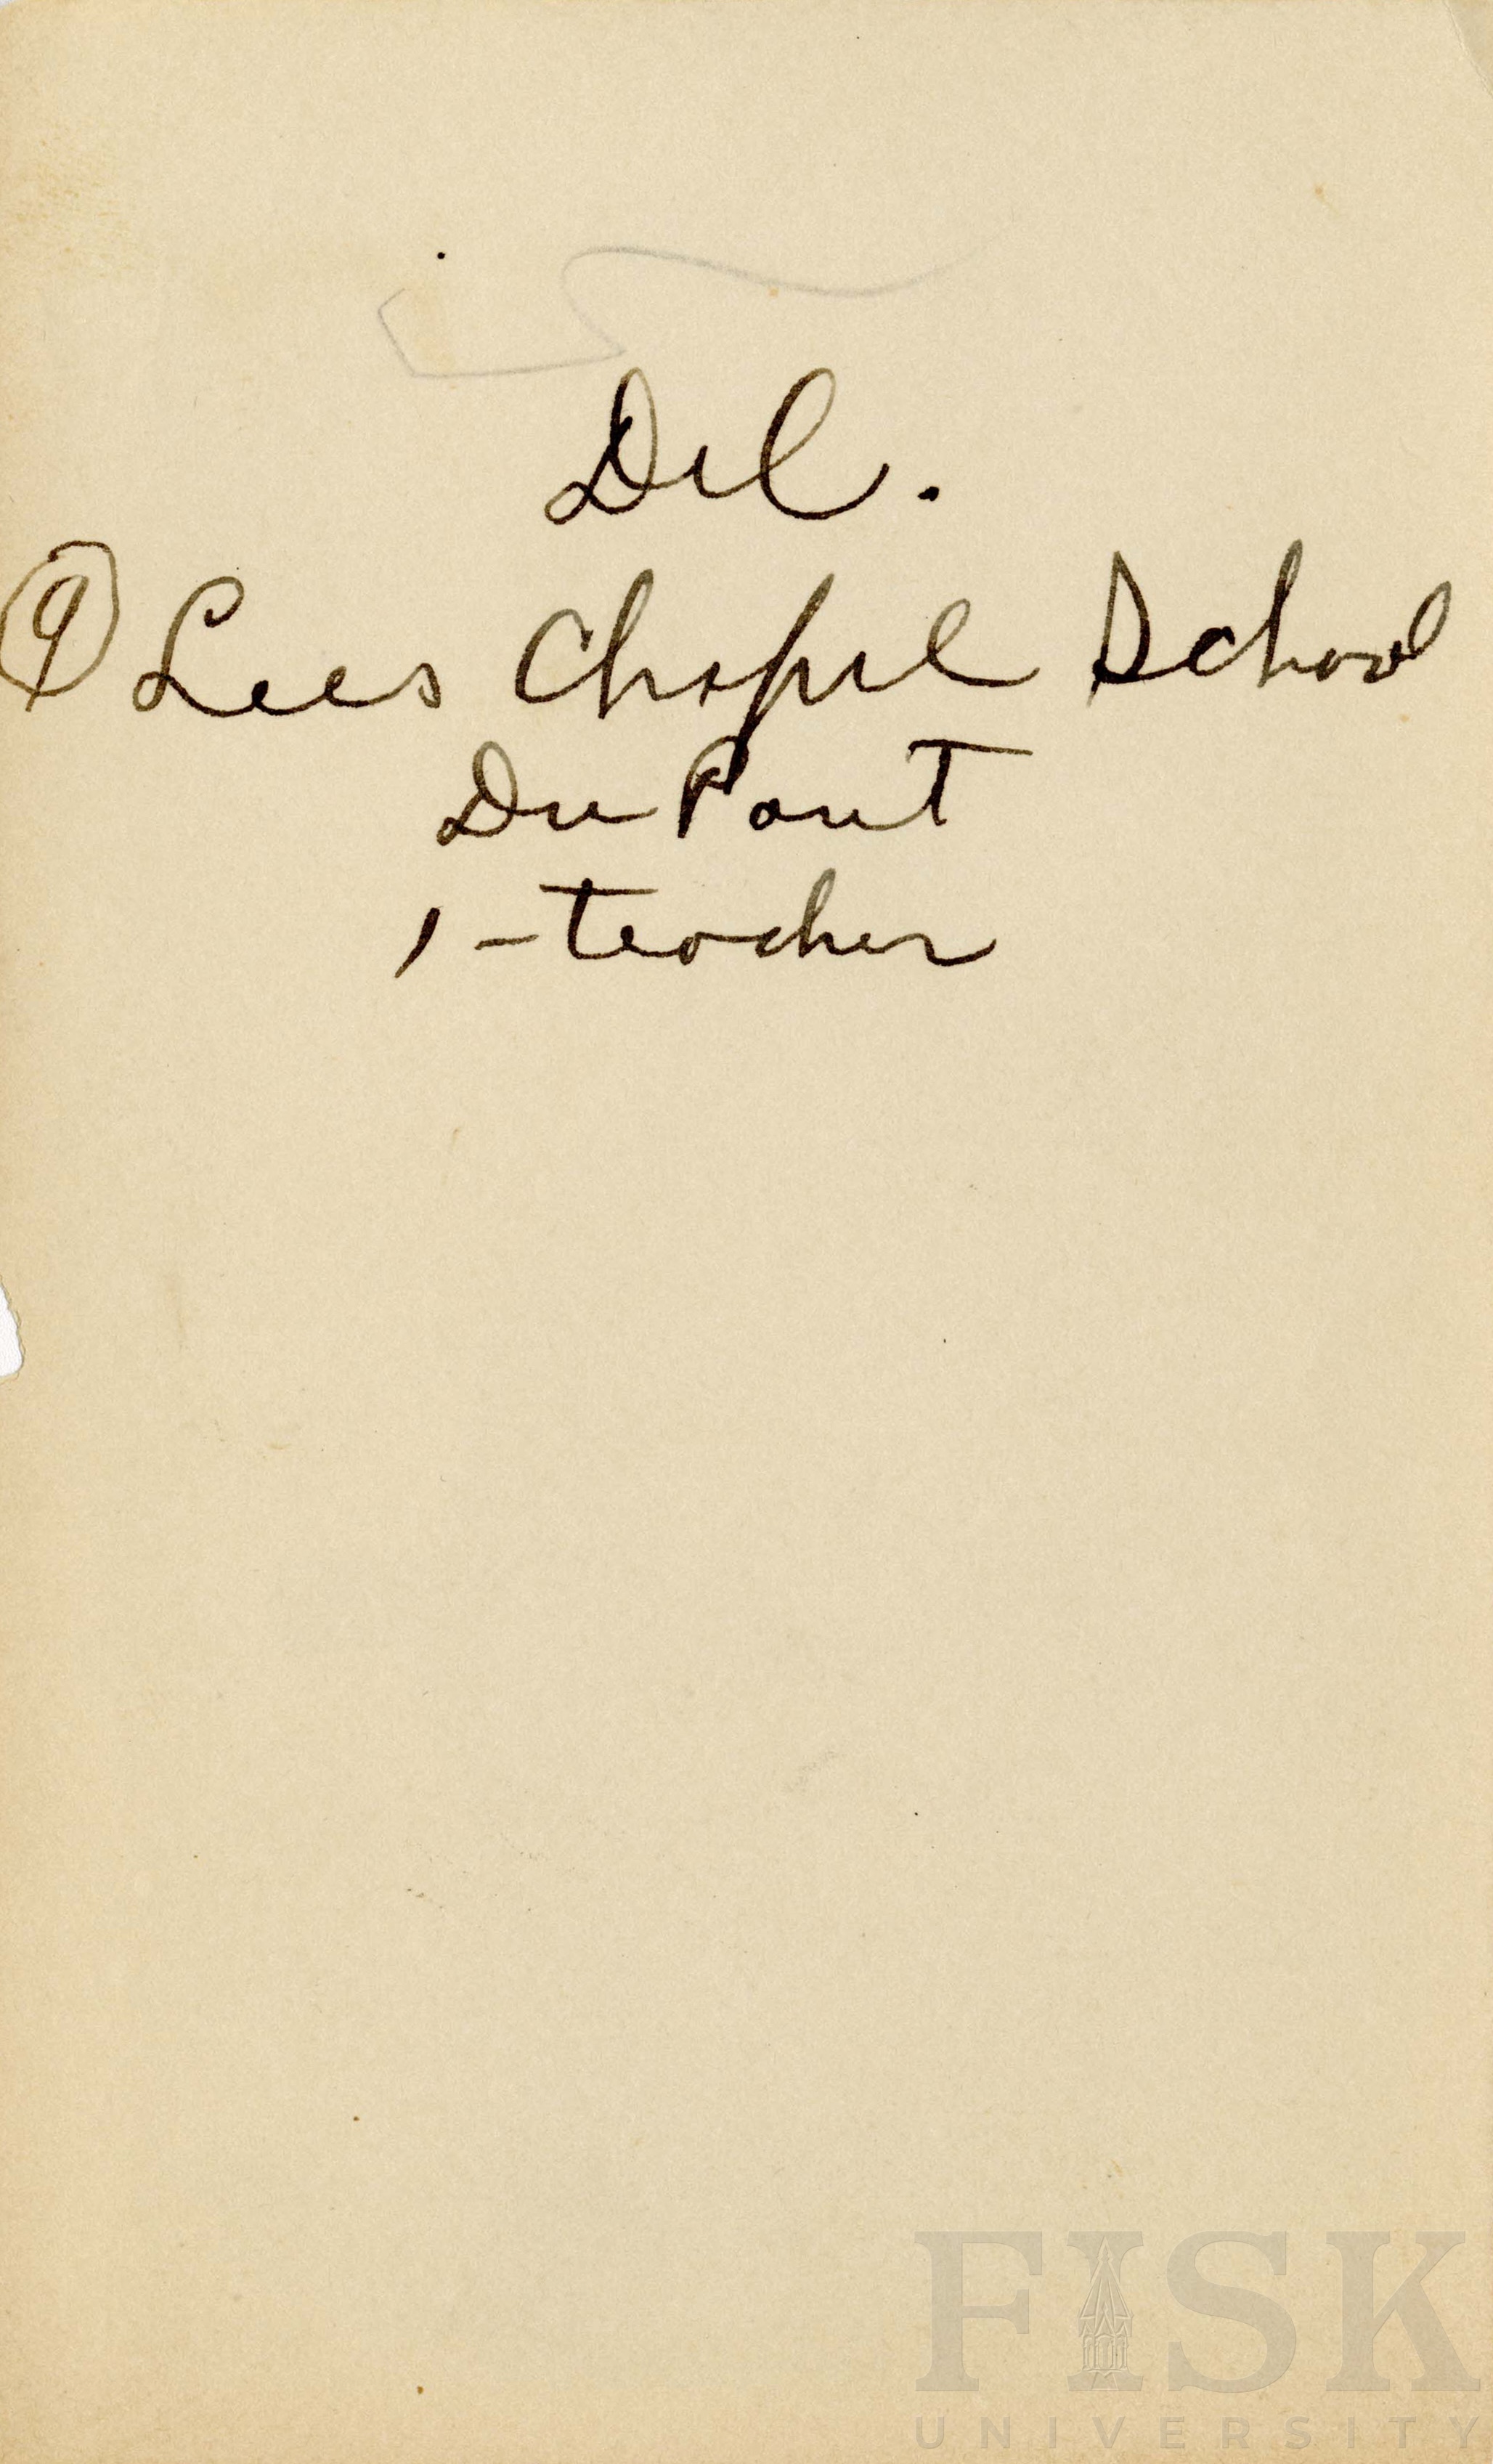 Del.
9 Lees Chapel School
DuPont
1-teacher
FISK
UNIVERSITY